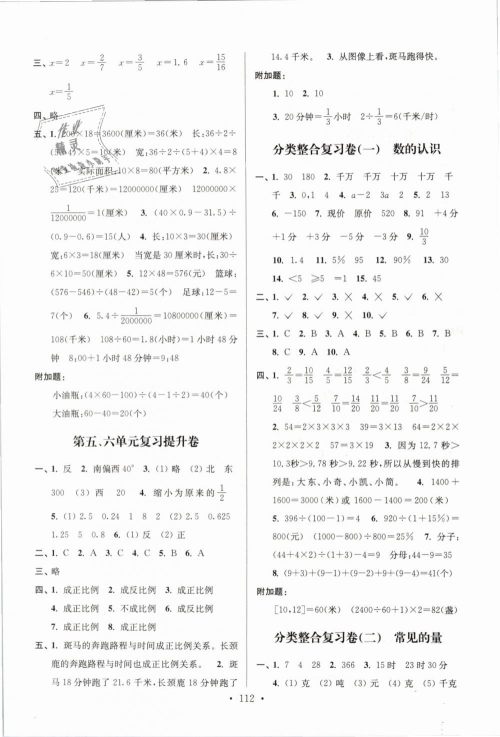 三、x=2　x=2/7　x=3/5　x=1.6　x=15/16
x=1/5
四、略
五、1. 200×18=3600(厘米)=36(米)　长:36÷2÷
×5=10(米)　宽:36÷2÷(5+4)×4=8
(米)　实际面积:10×8=80(平方米)　2. 4.8×
25=120(千米)=12000000(厘米)　12000000×
1/12000000=1(厘米)　3. (40×0.9-31.5)÷
(0.9-0.6)=15(人)　4. 长:10×3=30(厘米)
宽:6×3=18(厘米)　当宽是30厘米时,长:30÷
6×10=50(厘米)　5. 12×48=576(元)　篮球:
(576-546)÷(48-42)=5(个)　足球:12-5=
7(个)　6. 5.4÷1/2000000=10800000(厘米)=
108(千米)　108÷60=1.8(小时)=1小时48分
钟　8:00+1小时48分钟=9:48
附加题:
小油瓶:(4×60-100)÷(4-1÷2)=40(个)
大油瓶:60-40=20(个)
第五、六单元复习提升卷
一、1. 反　2. 南偏西40°　3. (1)略　(2)北　东
300　(3)西　20　4. 缩小为原来的1/2
5. (1)2.5　0.24　1　8　2　(2)2.5　0.625
1.25　5　0.8　6. (1)反　(2)正
二、1. C　2. A　3. C　4. C　5. B　6. A
三、略
四、1. 成正比例　2. 成反比例　3. 成正比例
4. 成正比例　5. 不成比例　6. 成反比例
7. 成正比例　8. 成正比例
五、1. 斑马的奔跑路程与时间成正比例关系。长颈
鹿的奔跑路程与时间也成正比例关系。　2. 斑
马18分钟跑了21.6千米,长颈鹿18分钟跑了
14.4千米。　3. 从图像上看,斑马跑得快。
附加题:
1. 10　2. 10
3. 20分钟=1/3小时　2÷1/3=6(千米/时)
分类整合复习卷(一)　数的认识
一、1. 30　180　2. 千万　千万　十万　十万　千
千　3. 0,1　4　4. a-2　3a　2　5. 2　13
6. -150　7. 现价　原价　520　8. 91　+4分
+1分　+3分　-5分　-3分　9. 10/3
10. 1.4　11. 5%　95　12. 90%　13. 30
14. <5　≥5　=1　15. 45
二、1. ✓　2. ✓　3. ×　4. ×　5. ✓　6. ×
7. ✓　8. ✓　9. ×　10. ✓
三、1. C　2. B　3. A　4. B　5. B　6. B　7. B
8. C　9. A　10. A
四、1. 2/3=10/15　4/15=4/15　2/3<4/5　3/8=9/24　5/12=
10/24　3/8<5/12　5/7=10/14　7/10=14/20　5/7>7/10
2. 54=2×3×3×3　39=3×13　64=2×2×
2×2×2×2　57=3×19　3. 因为12.7秒>
10.3秒>9.78秒>9.22秒,所以从慢到快的排
列是:大东、小奇、小凯、小简。　4. 1400+
1600=3000(米)或1600-1400=200(米)
5. 396÷(100-4)　6. 920÷(1+15%)=
800(元)　(1000-800)÷800=25%　7. 分子:
(44+4×2)÷(1+3)-4=9　分母:44-9=35
8. (9+3)+(9-1)+(9-2)+9+(9-4)=41(个)
附加题:
[10,12]=60(米)　(2400÷60+1)×2=82(盏)
分类整合复习卷(二)　常见的量
一、1. 7　4　28　2. 366　3. 15时　23时30分
4. (1)克　(2)吨　(3)元　(4)克　(5)千克
· 112 ·